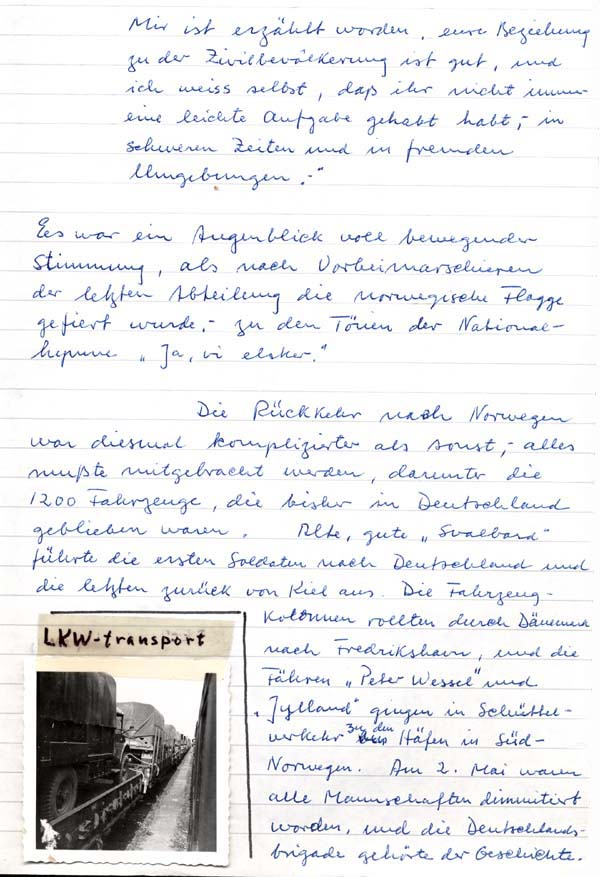 Mir ist erzählt worden, eure Beziehung
zu der Zivilbevölkerung ist gut, und
ich weiss selbst, daß ihr nicht immer
eine leichte Aufgabe gehabt habt,- in
schweren Zeiten und in fremden
Umgebungen.-"
Ees war ein Augenblick voll bewegender
Stimmung, als nach Vorbeimarschieren
der letzten Abteilung die norwegische Flagge
gefiert wurde,- zu den Tönen der National-
hymne „Ja, vi elsker."
Die Rückkehr nach Norwegen
war diesmal komplizierter als sonst,- alles
mußte mitgebracht werden, darunter die
1200 Fahrzeuge, die bisher in Deutschland
geblieben waren. Alte, gute „Svalbard"
führte die ersten Soldaten nach Deutschland und
die letzten zurück von Kiel aus. Die Fahrzeug-
kolonnen rollten durch Dänemark
nach Fredrikshavn, und die
Fähren „Peter Wessel" und
„Jylland" gingen in Schüttel-
verkehr zu den Häfen in Süd-
Norwegen. Am 2. Mai waren
alle Mannschaften dimittiert
worden, und die Deutschlands-
brigade gehörte der Geschichte.
LKW-transport